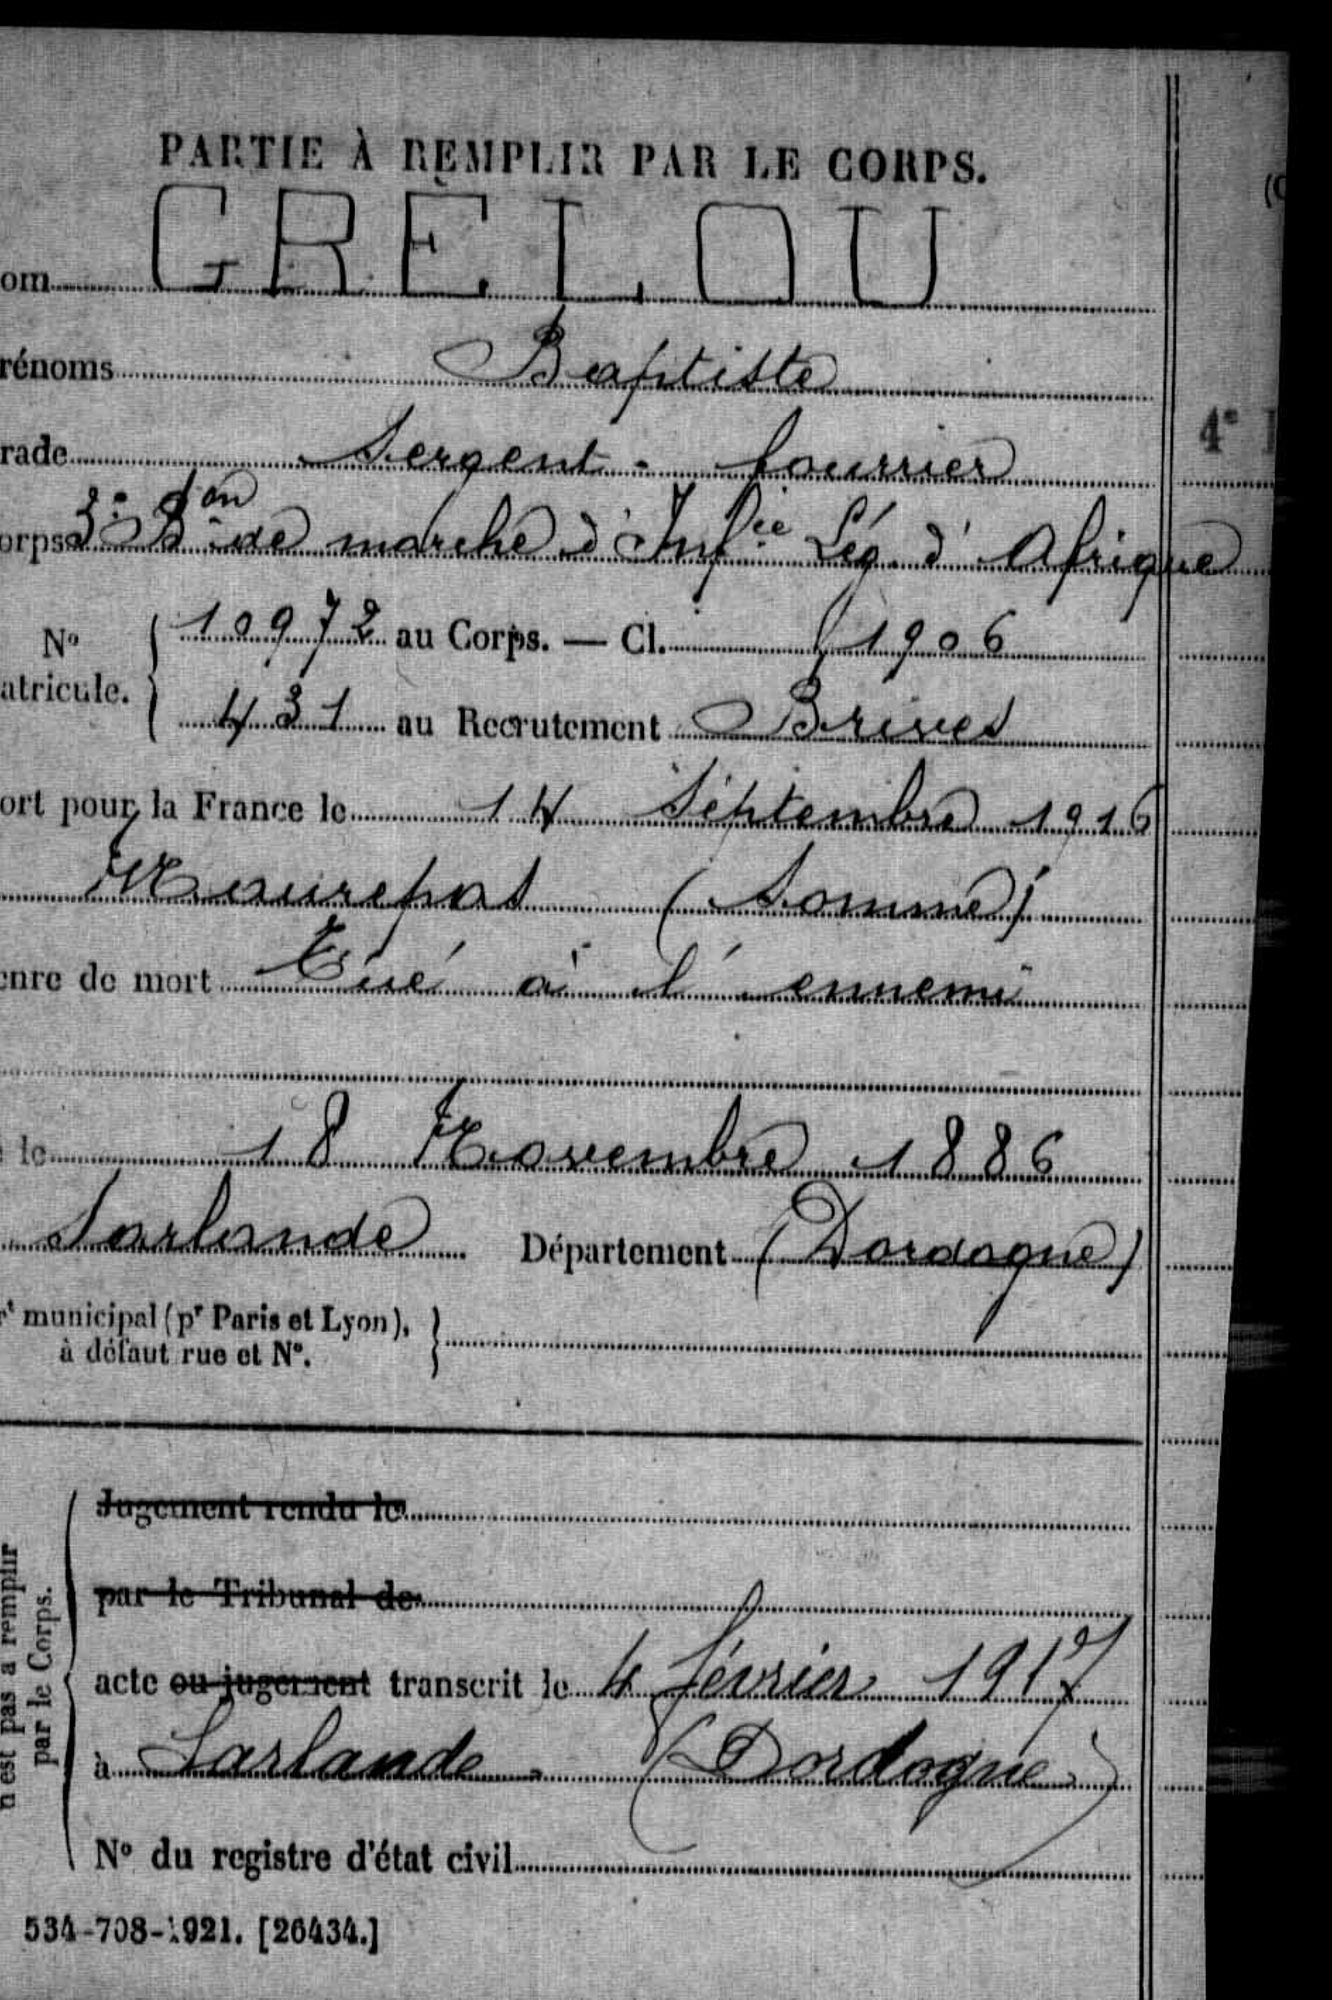 PARTIE À REMPLIR PAR LE CORPS.
om GRELOU
rénoms Baptiste
rade Sergent-fourrier
orps 3e Bon de marche d'Infie Lég. d'Afrique
No atricule. 10972 au Corps. — Cl. 1906
431 au Recrutement Brives
ort pour la France le 14 Septembre 1916
Maurepas (Somme)
enre de mort Tué à l'ennemi
le 18 Novembre 1886
Sarlande Département (Dordogne)
rt municipal (pr Paris et Lyon),
à défaut rue et No.
n'est pas à remplir
par le Corps.
Jugement rendu le
par le Tribunal de
acte ou jugement transcrit le 4 février 1917
à Sarlande (Dordogne)
No du registre d'état civil
534-708-1921. [26434.]
4e